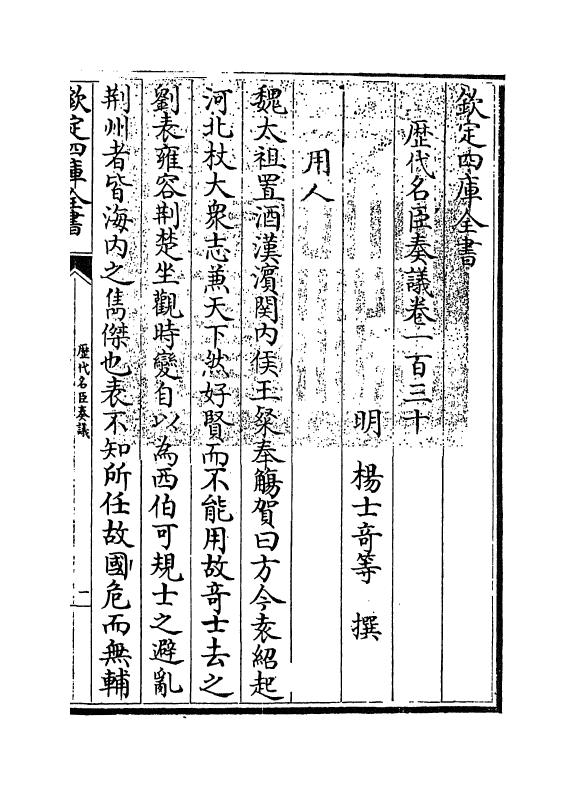 欽定四庫全書
歴代名臣奏議卷一百三十
明 楊士竒等 撰
用人
魏太祖置酒漢濱閔内侯王粲奉觴賀曰方今袁紹起
河北杖大衆志兼天下然好賢而不能用故竒士去之
劉表雍容荆楚坐觀時變自以為西伯可規士之避亂
荆州者皆海内之雋傑也表不知所任故國危而無輔
欽定四庫全書
歴代名臣奏議
一